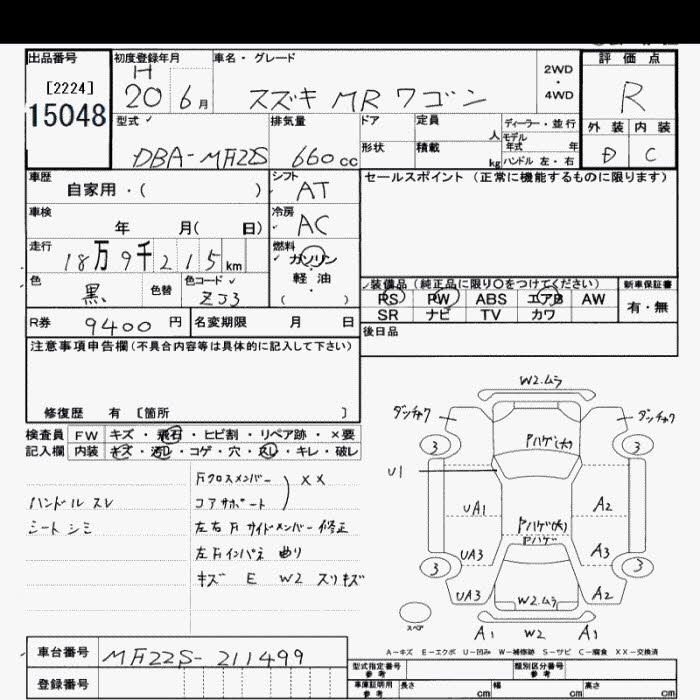 出品番号
[2224]
15048
初度登録年月
H
20 6 月
車名・グレード
スズキ MRワゴン
2WD
・
4WD
評価点
R
外装 内装
D C
型式
DBA-MF22S
排気量
660 cc
ドア
形状
定員
人
積載
kg
ディーラー・並行
モデル
年式 年
ハンドル 左・右
車歴
自家用・( )
シフト
AT
セールスポイント (正常に機能するものに限ります)
車検
年 月( 日)
冷房
AC
走行
18万9千215 km
燃料
ガソリン
・
軽油
( )
色
黒
色替
色コード
ZJ3
装備品 (純正品に限り○をつけてください)
PS PW ABS エアB AW
SR ナビ TV カワ
新車保証書
有・無
R券 9400 円
名変期限 月 日
後日品
注意事項申告欄(不具合内容等は具体的に記入して下さい)
修復歴 有 [箇所 ]
検査員
記入欄
FW キズ・飛石・ヒビ割・リペア跡・×要
内装 キズ・汚レ・コゲ・穴・スレ・キレ・破レ
ハンドル スレ
シート シミ
Fクロスメンバー
コアサポート
) XX
左右Fサイドメンバー修正
左Fインパネ 曲り
キズ E W2 スリキズ
W2.ムラ
ダッチャク
ダッチャク
3
3
Pハゲ(大)
U1
UA1
A2
Pハゲ(大)
Pハゲ
UA3
A3
3
3
UA3
A2
W2.ムラ
スペア
A1 W2 A1
A-キズ E-エクボ U-凹み W-補修跡 S-サビ C-腐食 XX-交換済
車台番号
MF22S-211499
登録番号
型式指定番号
参考
類別区分番号
参考
車庫証明用
参考
長さ cm
幅 cm
高さ cm